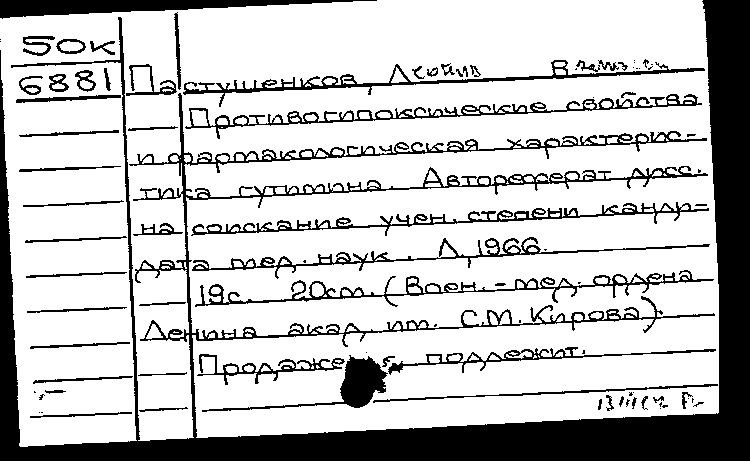 50к
6881 Пастушенков, Леонид В
Противогипоксические свойства
и фармакологическая характерис-
тика гутимина. Автореферат дисс.
на соискание учен. степени канди-
дата мед. наук. Л, 1966.
19с. 20см. (Воен.-мед. ордена
Ленина акад. им. С.М. Кирова).
Продаже подлежит.